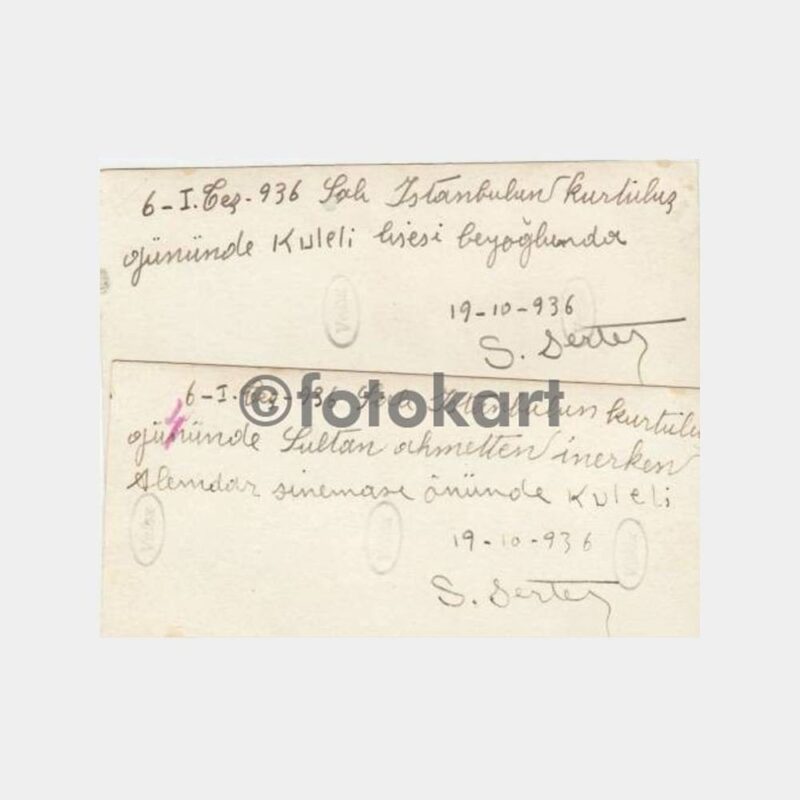 6-I.Teş-936 Salı İstanbulun kurtuluş
gününde Kuleli lisesi beyoğlunda
19-10-936
S. Sertez
©fotokart
6-I.Teş-936 Salı İstanbulun kurtulu
gününde Sultan ahmetten inerken
Alemdar sineması önünde Kuleli
19-10-936
S. Sertez
Velox
Velox